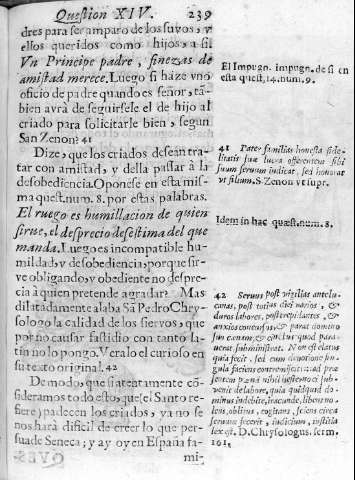 Question XIV. 239
dres para ser amparo de los suyos, y
ellos queridos como hijos, a si.
Vn Principe padre, finezas de
amistad merece. Luego si haze vno
oficio de padre quando es señor, tã-
bien avrà de seguirsele el de hijo al
criado para solicitarle bien, segun
San Zenon? 41
Dize, que los criados desean tra-
tar con amistad, y della passar à la
desobediencia. Oponese en esta mis-
ma quest. num. 8. por estas palabras.
El ruego es humillacion de quien
sirue, el desprecio desestima del que
manda. Luego es incompatible hu-
mildad, y desobediencia, porque sir-
ve obligando, y obediente no despre-
cia à quien pretende agradar? Mas
dilatadamente alaba Sã Pedro Chry-
sologo la calidad de los siervos, que
por no causar fastidio con tanto la-
tin no lo pongo. Veralo el curioso en
su texto original. 42
De modo, que si atentamente cõ-
sideramos todo esto, que (el Santo re-
fiere) padecen los criados, ya no se
nos harà dificil de creer lo que per-
suade Seneca; y ay oy en España fa-
mi-
El Impugn. impugn. de si en
esta quest. 14. num. 9.
41 Pater familias honesta fide-
litatis suæ iura offerentem sibi
suum seruum iudicat, sed honorat
vt filium. S. Zenon vt supr.
Idem in hac quæst. num. 8.
42 Seruus post vigilias antelu-
canas, post totius diei varios, &
duros labores, post trepidantes, &
anxios concursus, & parat domino
suo cœnam, & cinctus quod parau-
erat subministrat.
quia fecit, sed cum deuotione sin-
gula faciens
sentem pœnã nihil
uenit de labore, quia quidquid do-
minus indebite, iracunde, libens no-
lens, oblitus, cogitans, sciens circa
seruum fecerit, iudicium, iustitia
lex est. D. Chrysologus. serm.
161.
QVES-